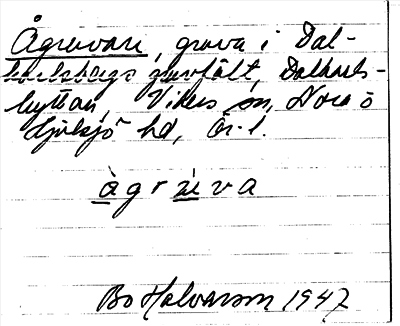 Ågruvan, gruva i Dal-
karlsbergs gruvfält, Dalkarls-
hyttan, Vikers sn, Nora o
Hjulsjö hd, Ör. l.
å̀gru̇va
Bo Halvarson 1947